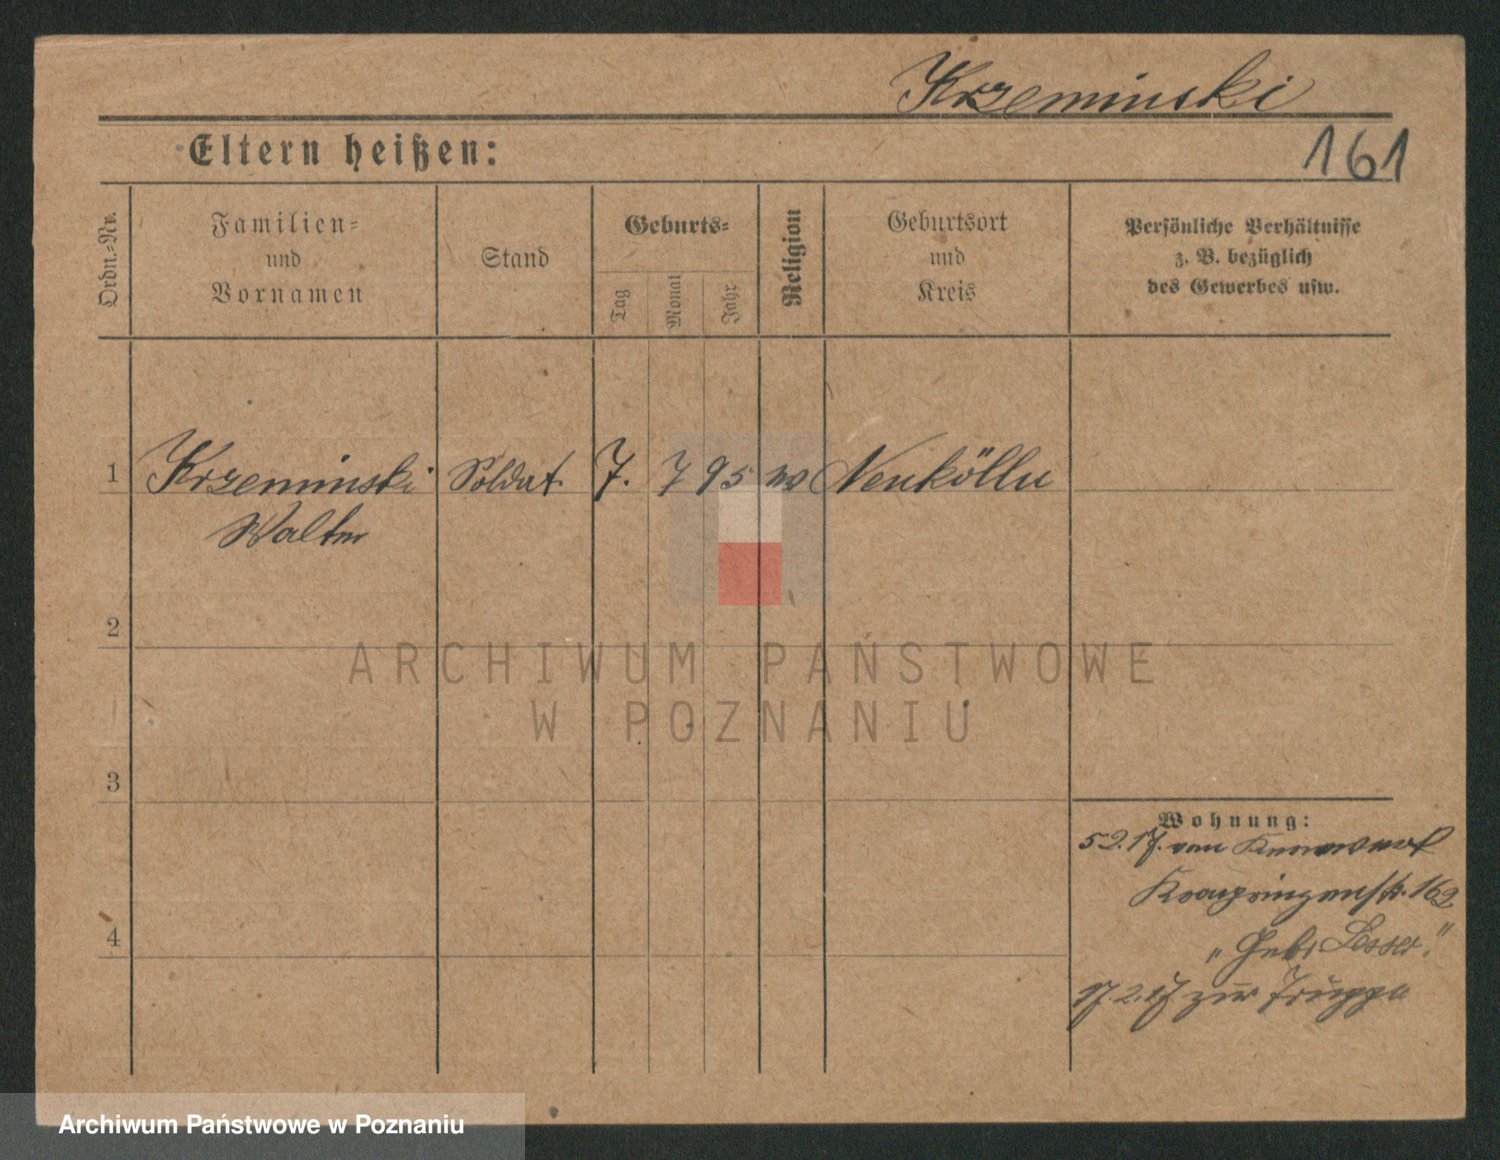 Krzeminski
161
Eltern heißen:
Ordn.-Nr.
Familien-
und
Vornamen
Stand
Geburts-
Tag
Monat
Jahr
Religion
Geburtsort
und
Kreis
Persönliche Verhältnisse
z. B. bezüglich
des Gewerbes usw.
1 Krzeminski Soldat. 7. 7 95 Neukölln
Walter
2
3
4
Wohnung:
5 2. 17. von
Kronprinzenstr. 162
"Gebr Lesser."
17. 2. 17 zur Truppe
ARCHIWUM PAŃSTWOWE
W POZNANIU
Archiwum Państwowe w Poznaniu